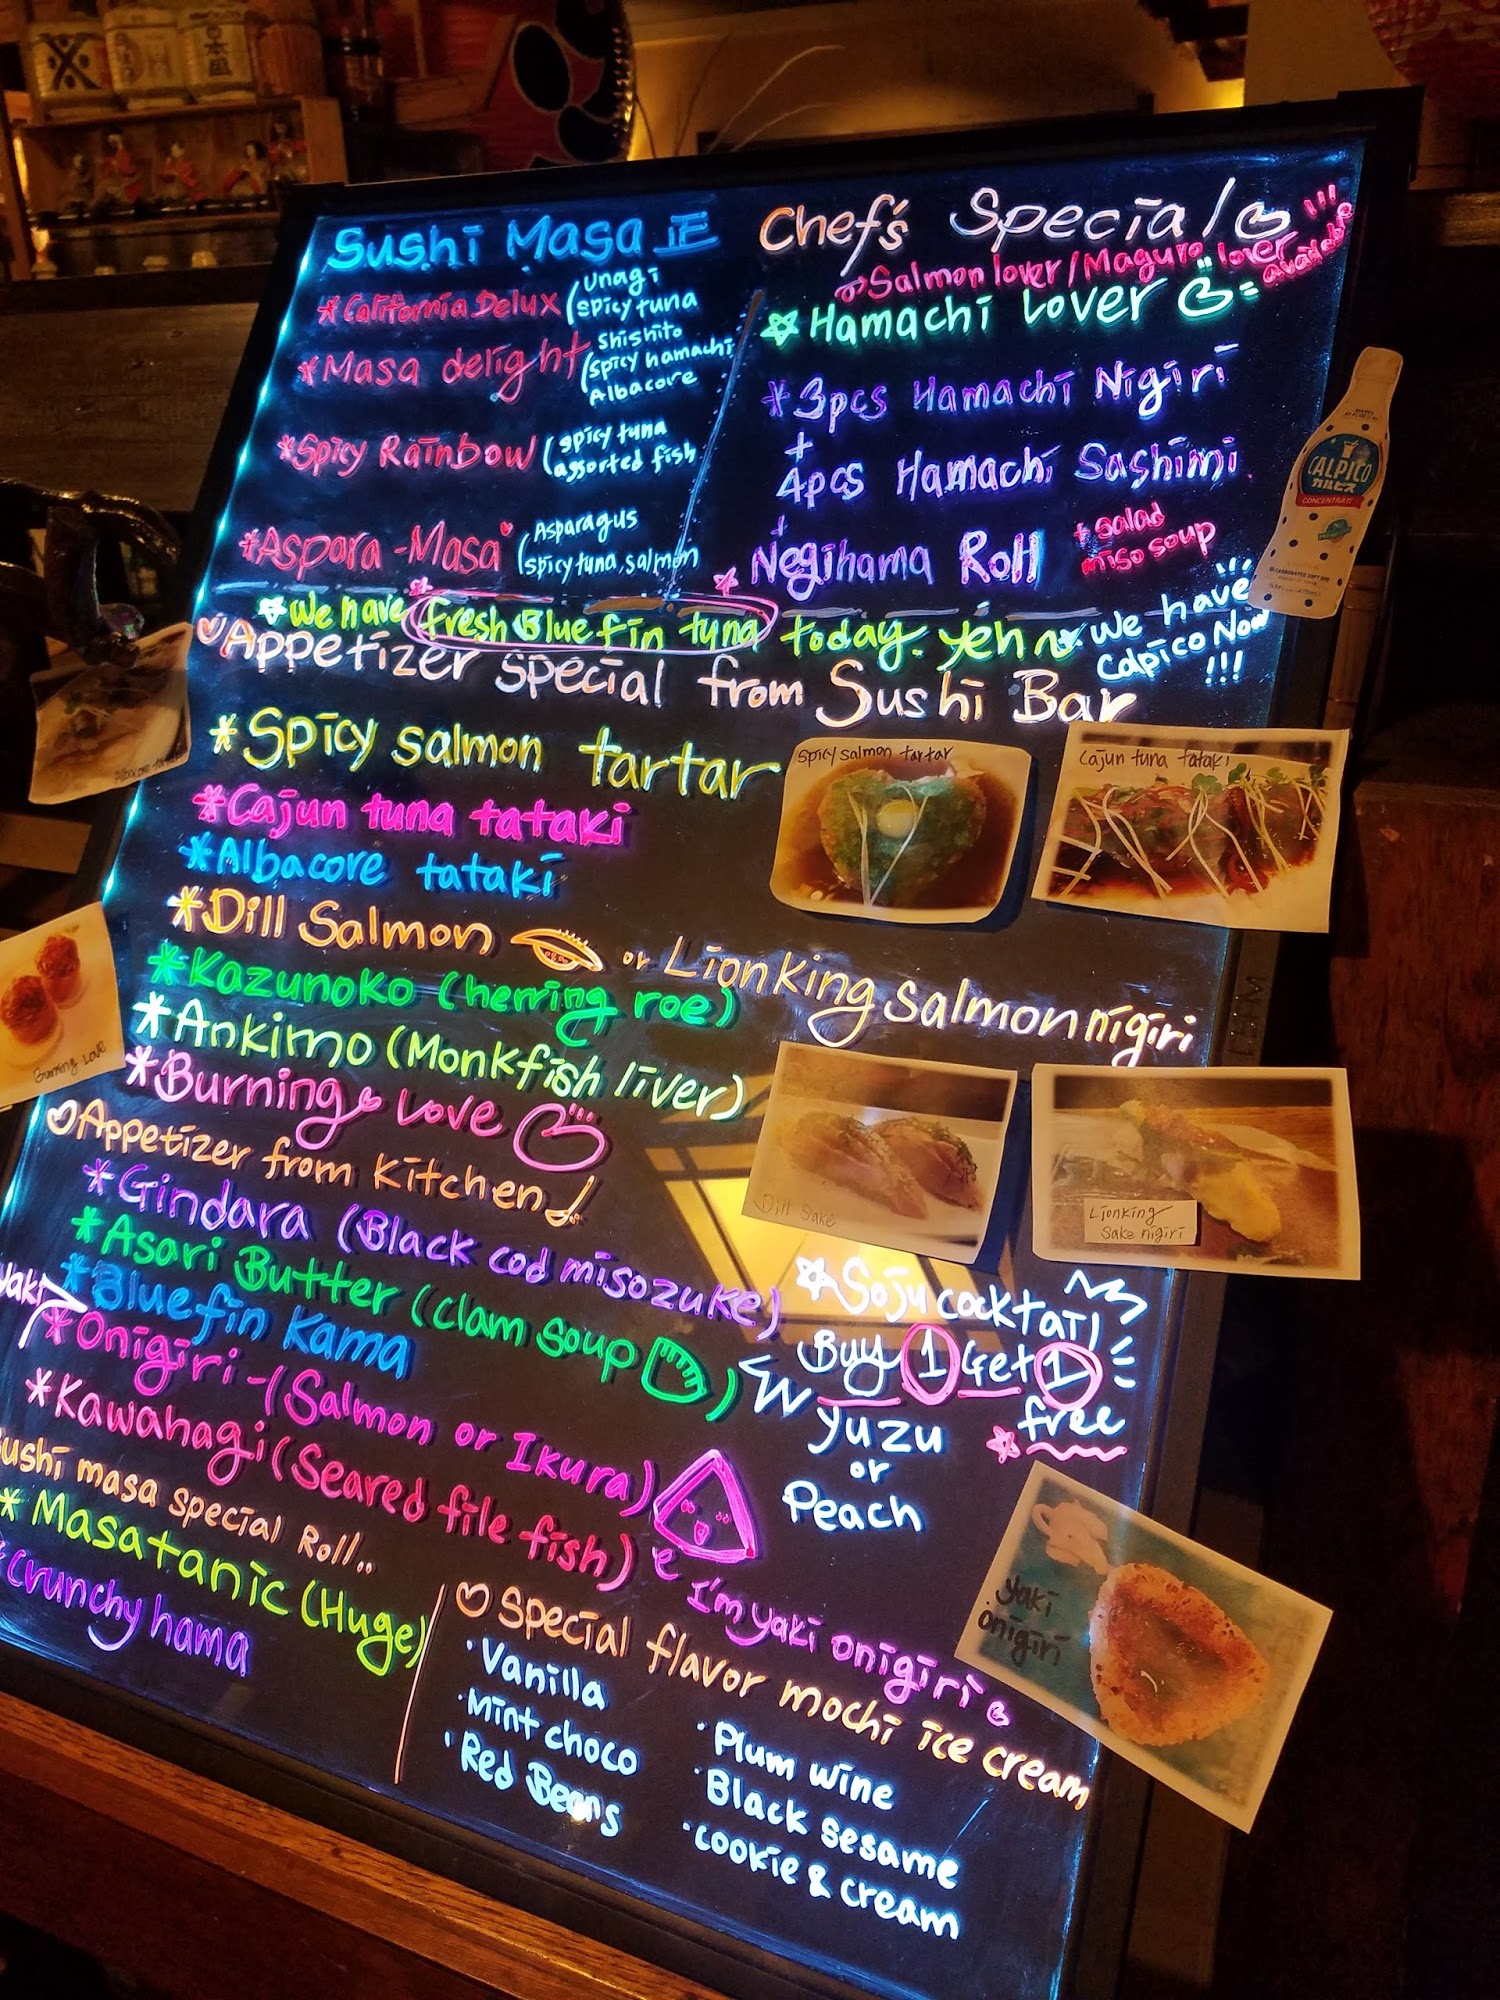 Sushi Masa 正
*California Delux (Unagi
spicy tuna
*Masa delight (shishito
spicy hamachi
Albacore
*Spicy Rainbow (spicy tuna
assorted fish
*Aspara-Masa (Asparagus
spicy tuna, salmon
Chef's Special
Salmon lover/Maguro lover
available!!!
Hamachi Lover
*3pcs Hamachi Nigiri
+
4pcs Hamachi Sashimi
+
Negihama Roll
+ salad
miso soup
CALPICO
カルピス
CONCENTRATE
We have fresh Bluefin tuna today. yeh~
We have
Calpico Now
!!!
Appetizer special from Sushi Bar
*Spicy salmon tartar
*Cajun tuna tataki
*Albacore tataki
*Dill Salmon or Lionking salmon nigiri
*Kazunoko (herring roe)
*Ankimo (Monkfish liver)
*Burning Love
Spicy salmon tartar
Cajun tuna tataki
Albacore tataki
Burning Love
Dill Sake
Lionking
Sake nigiri
Appetizer from Kitchen
*Gindara (Black cod misozuke)
*Asari Butter (clam soup)
*Bluefin Kama
yaki
*Onigiri-(Salmon or Ikura)
*Kawahagi (Seared file fish)
I'm yaki onigiri
Soju cocktail
Buy 1 Get 1
free
yuzu
or
Peach
yaki
onigiri
sushi masa special Roll..
*Masatanic (Huge)
*Crunchy hama
Special flavor mochi ice cream
·Vanilla
·Mint choco
·Red Beans
·Plum wine
·Black sesame
·cookie & cream